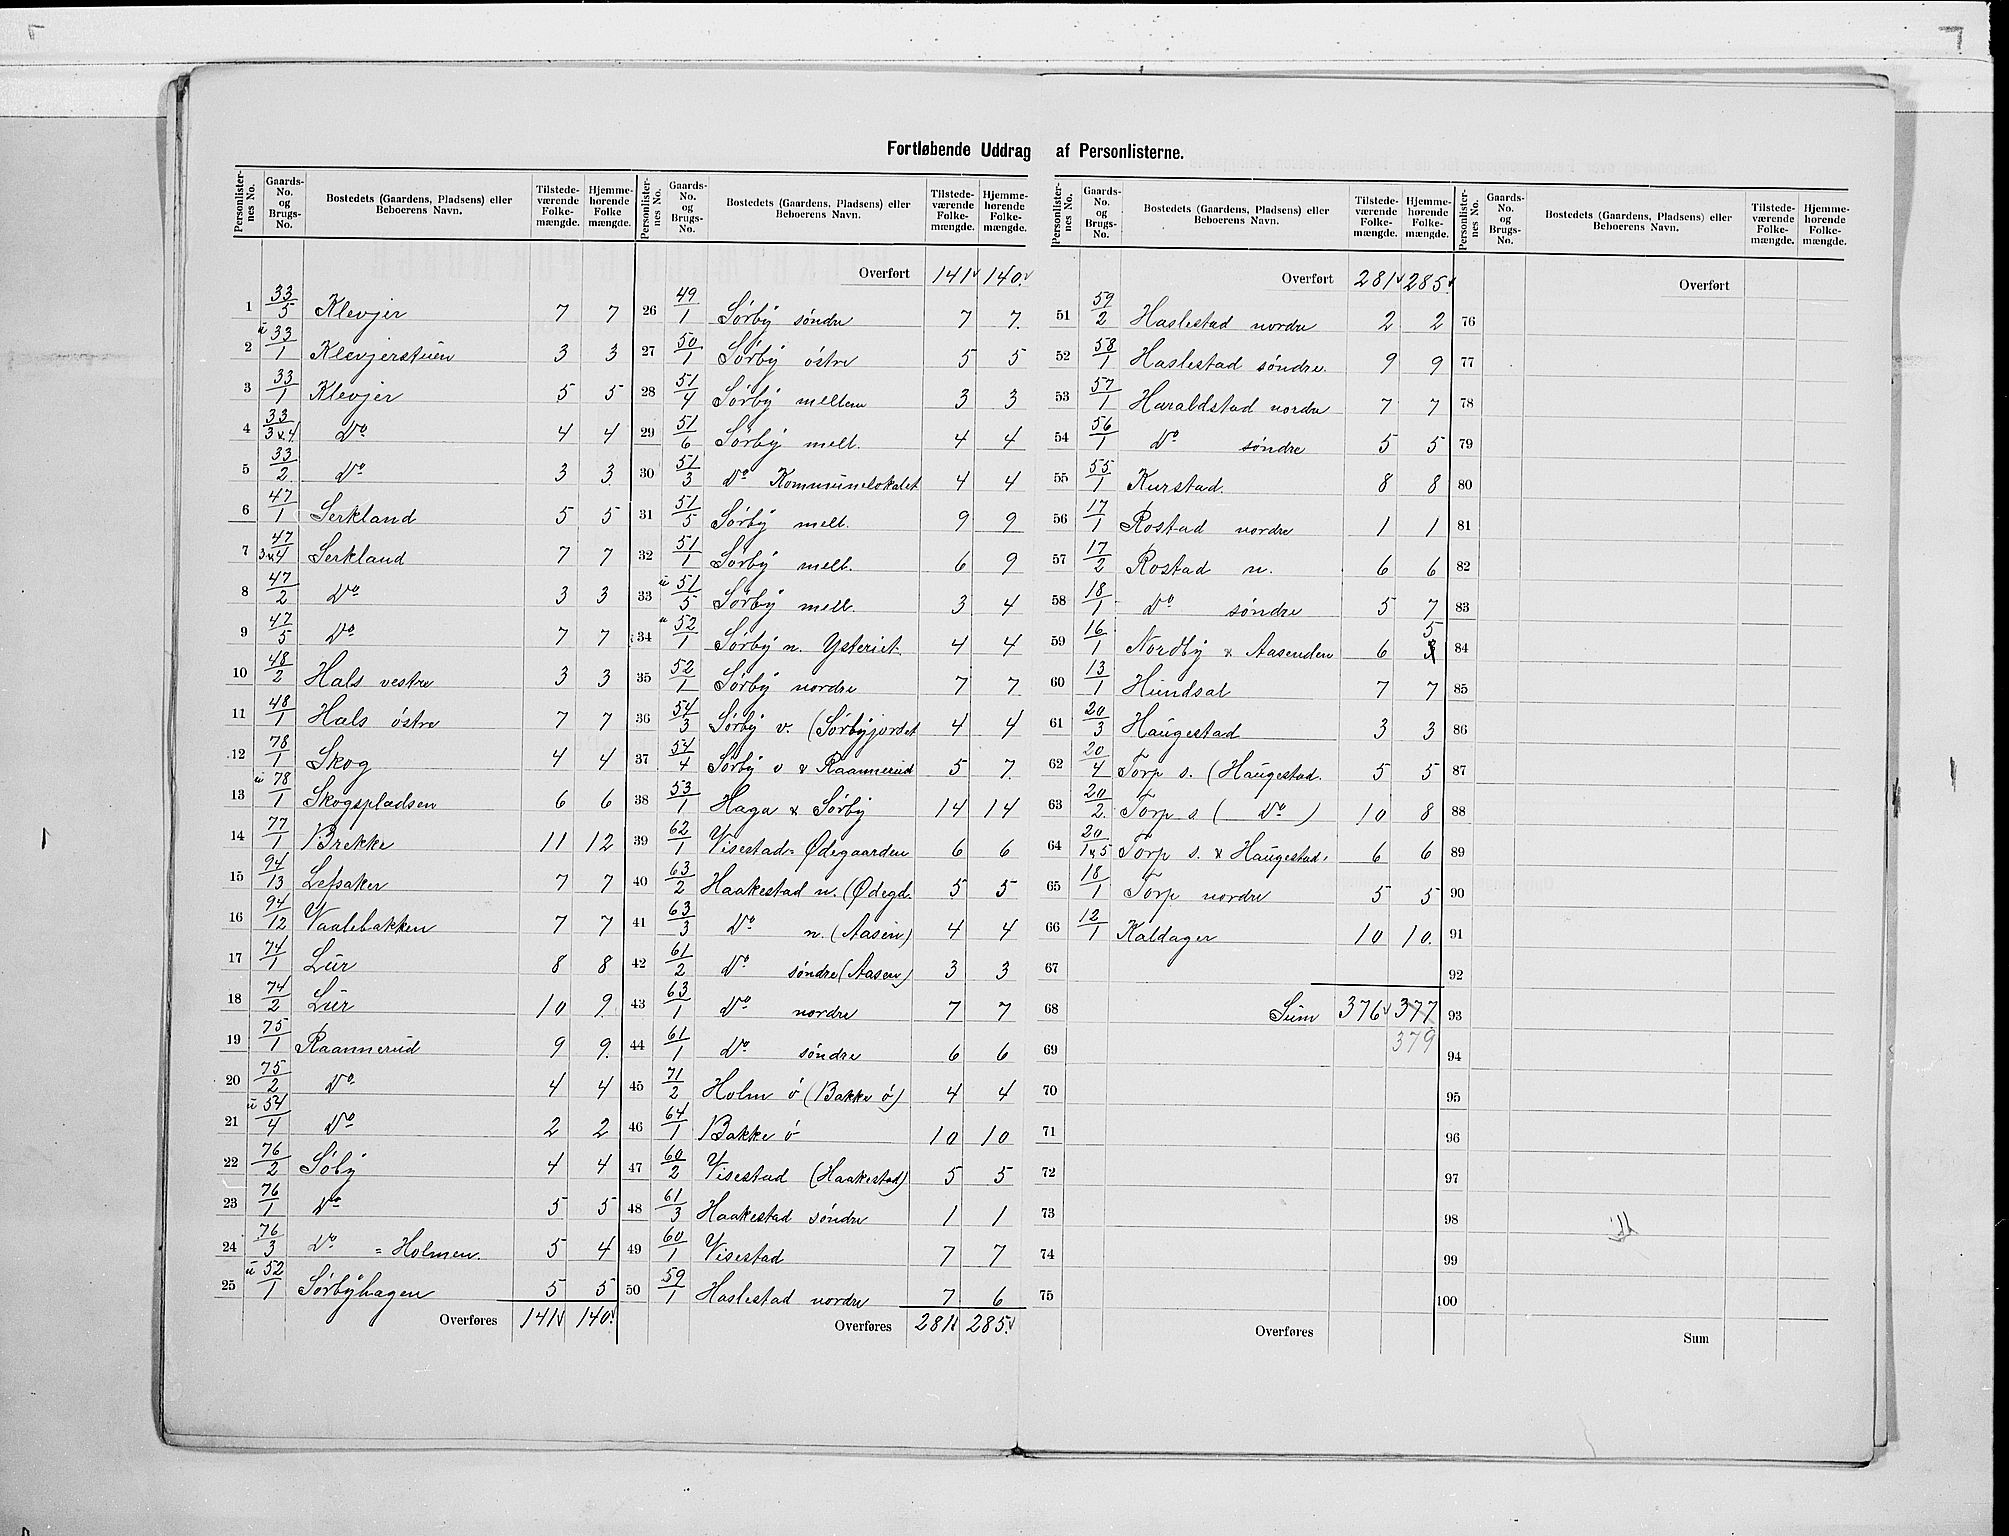 Fortløbende Uddrag af Personlisterne.
Personlisternes No. Gaards-No. og Brugs-No. Bostedets (Gaardens, Pladsens) eller Beboerens Navn. Tilstedeværende Folkemængde. Hjemmehørende Folkemængde.
1 33/5 Klevjer 7 7
2 u 33/1 Klevjerstuen 3 3
3 33/1 Klevjer 5 5
4 33/3 & 4 Do 4 4
5 33/2 Do 3 3
6 47/1 Serkland 5 5
7 47/3 & 4 Serkland 7 7
8 47/2 Do 3 3
9 47/5 Do 7 7
10 48/2 Hals vestre 3 3
11 48/1 Hals östre 7 7
12 78/1 Skog 4 4
13 u 78/1 Skogspladsen 6 6
14 77/1 Brekke 11 12
15 94/13 Lefsaker 7 7
16 94/12 Vaalebakken 7 7
17 74/1 Lur 8 8
18 74/2 Lur 10 9
19 75/1 Raannerud 9 9
20 75/2 Do 4 4
21 u 54/4 Do 2 2
22 76/2 Söby 4 4
23 76/1 Do 5 5
24 76/3 Do = Holmen 5 4
25 u 52/1 Sörbyhagen 5 5
Overføres 141 140
Personlisternes No. Gaards-No. og Brugs-No. Bostedets (Gaardens, Pladsens) eller Beboerens Navn. Tilstedeværende Folkemængde. Hjemmehørende Folkemængde.
Overført 141 140
26 49/1 Sörby söndre 7 7
27 50/1 Sörby östre 5 5
28 51/4 Sörby mellem 3 3
29 51/6 Sörby mell. 4 4
30 51/3 Do Kommunelokalet 4 4
31 51/5 Sörby mell. 9 9
32 51/1 Sörby mell. 6 9
33 u 51/5 Sörby mell. 3 4
34 u 52/1 Sörby n. Ysteriet 4 4
35 52/1 Sörby nordre 7 7
36 54/3 Sörby v. (Sörbyjordet 4 4
37 54/4 Sörby v & Raannerud 5 7
38 53/1 Haga & Sörby 14 14
39 62/1 Visestad = Ødegaarden 6 6
40 63/2 Haakestad n. (Ødegd. 5 5
41 63/3 Do n. (Aasen) 4 4
42 61/2 Do söndre (Aasen) 3 3
43 63/1 Do nordre 7 7
44 61/1 Do söndre 6 6
45 71/2 Holm ö (Bakke ö) 4 4
46 64/1 Bakke ö 10 10
47 60/2 Visestad (Haakestad) 5 5
48 61/3 Haakestad söndre 1 1
49 60/1 Visestad 7 7
50 59/1 Haslestad nordre 7 6
Overføres 281 285
Personlisternes No. Gaards-No. og Brugs-No. Bostedets (Gaardens, Pladsens) eller Beboerens Navn. Tilstedeværende Folkemængde. Hjemmehørende Folkemængde.
Overført 281 285
51 59/2 Haslestad nordre 2 2
52 58/1 Haslestad söndre 9 9
53 57/1 Haraldstad nordre 7 7
54 56/1 Do söndre 5 5
55 55/1 Kurstad 8 8
56 17/1 Rostad nordre 1 1
57 17/2 Rostad n. 6 6
58 18/1 Do söndre 5 7
59 16/1 Nordby & Aasenden 6 5
60 13/1 Hundsal 7 7
61 20/3 Haugestad 3 3
62 20/4 Torp s. (Haugestad. 5 5
63 20/2 Torp s ( Do ) 10 8
64 20/1 & 5 Torp s. & Haugestad 6 6
65 18/1 Torp nordre 5 5
66 12/1 Kaldager 10 10
67
68 Sum 376 377
69 379
70
71
72
73
74
75
Overføres
Personlisternes No. Gaards-No. og Brugs-No. Bostedets (Gaardens, Pladsens) eller Beboerens Navn. Tilstedeværende Folkemængde. Hjemmehørende Folkemængde.
Overført
76
77
78
79
80
81
82
83
84
85
86
87
88
89
90
91
92
93
94
95
96
97
98
99
100
Sum